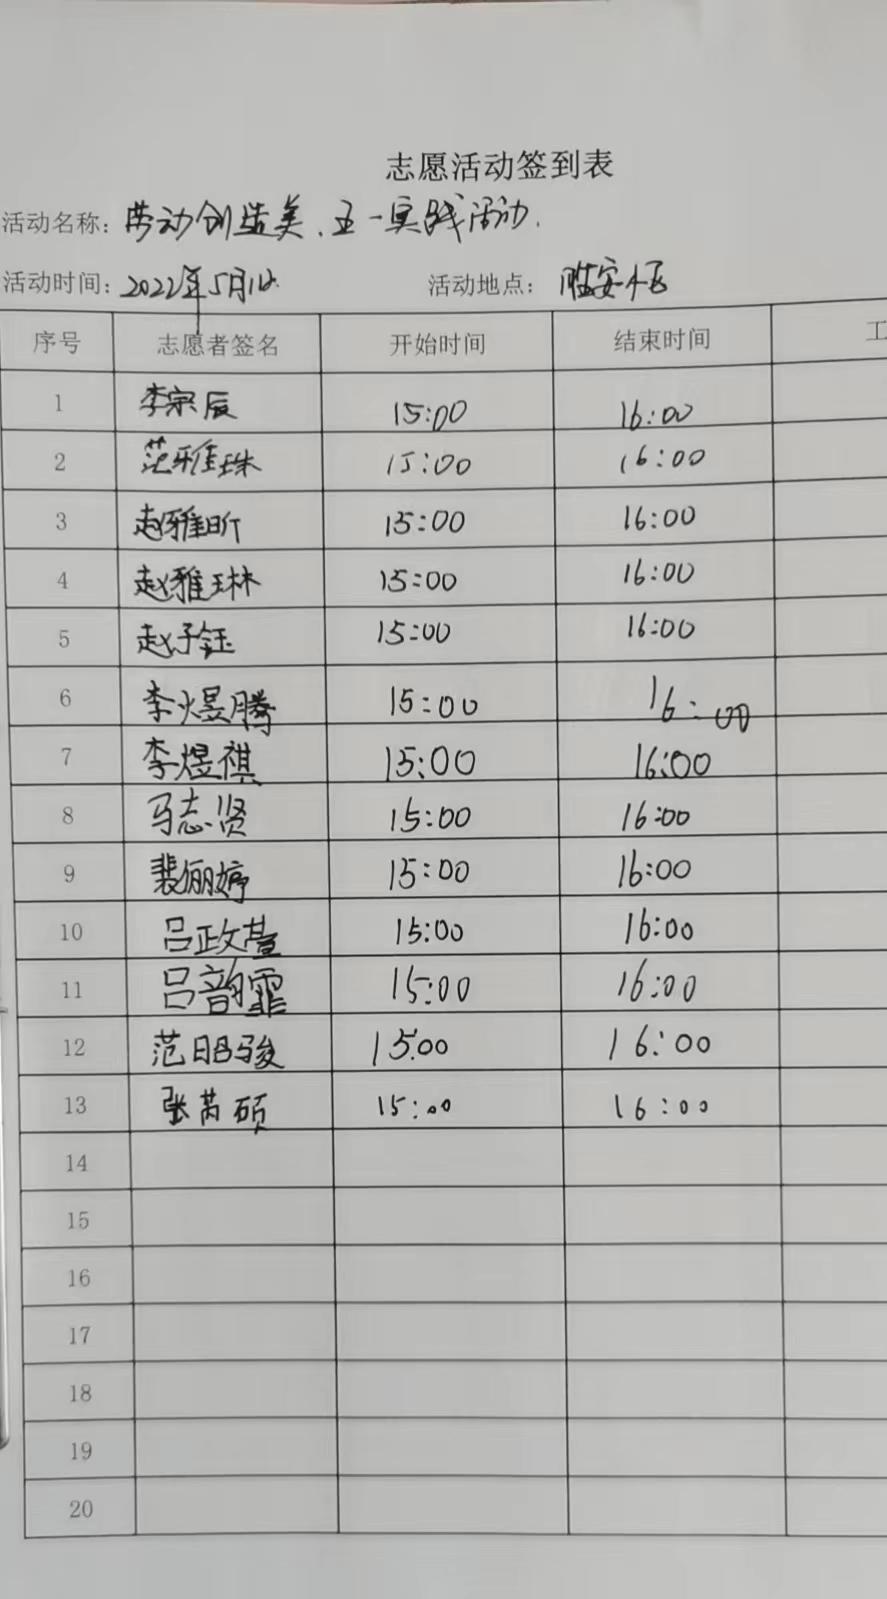 志愿活动签到表
活动名称：劳动创造美、五一实践活动.
活动时间：2022年5月1日 活动地点：临安小区
序号 志愿者签名 开始时间 结束时间 工
1 李宗辰 15:00 16:00
2 范雅珠 15:00 16:00
3 赵雅昕 15:00 16:00
4 赵雅琳 15:00 16:00
5 赵子钰 15:00 16:00
6 李煜腾 15:00 16:00
7 李煜祺 15:00 16:00
8 马志贤 15:00 16:00
9 裴俪婷 15:00 16:00
10 吕政萱 15:00 16:00
11 吕韵霏 15:00 16:00
12 范昭骏 15:00 16:00
13 张芮硕 15:00 16:00
14
15
16
17
18
19
20